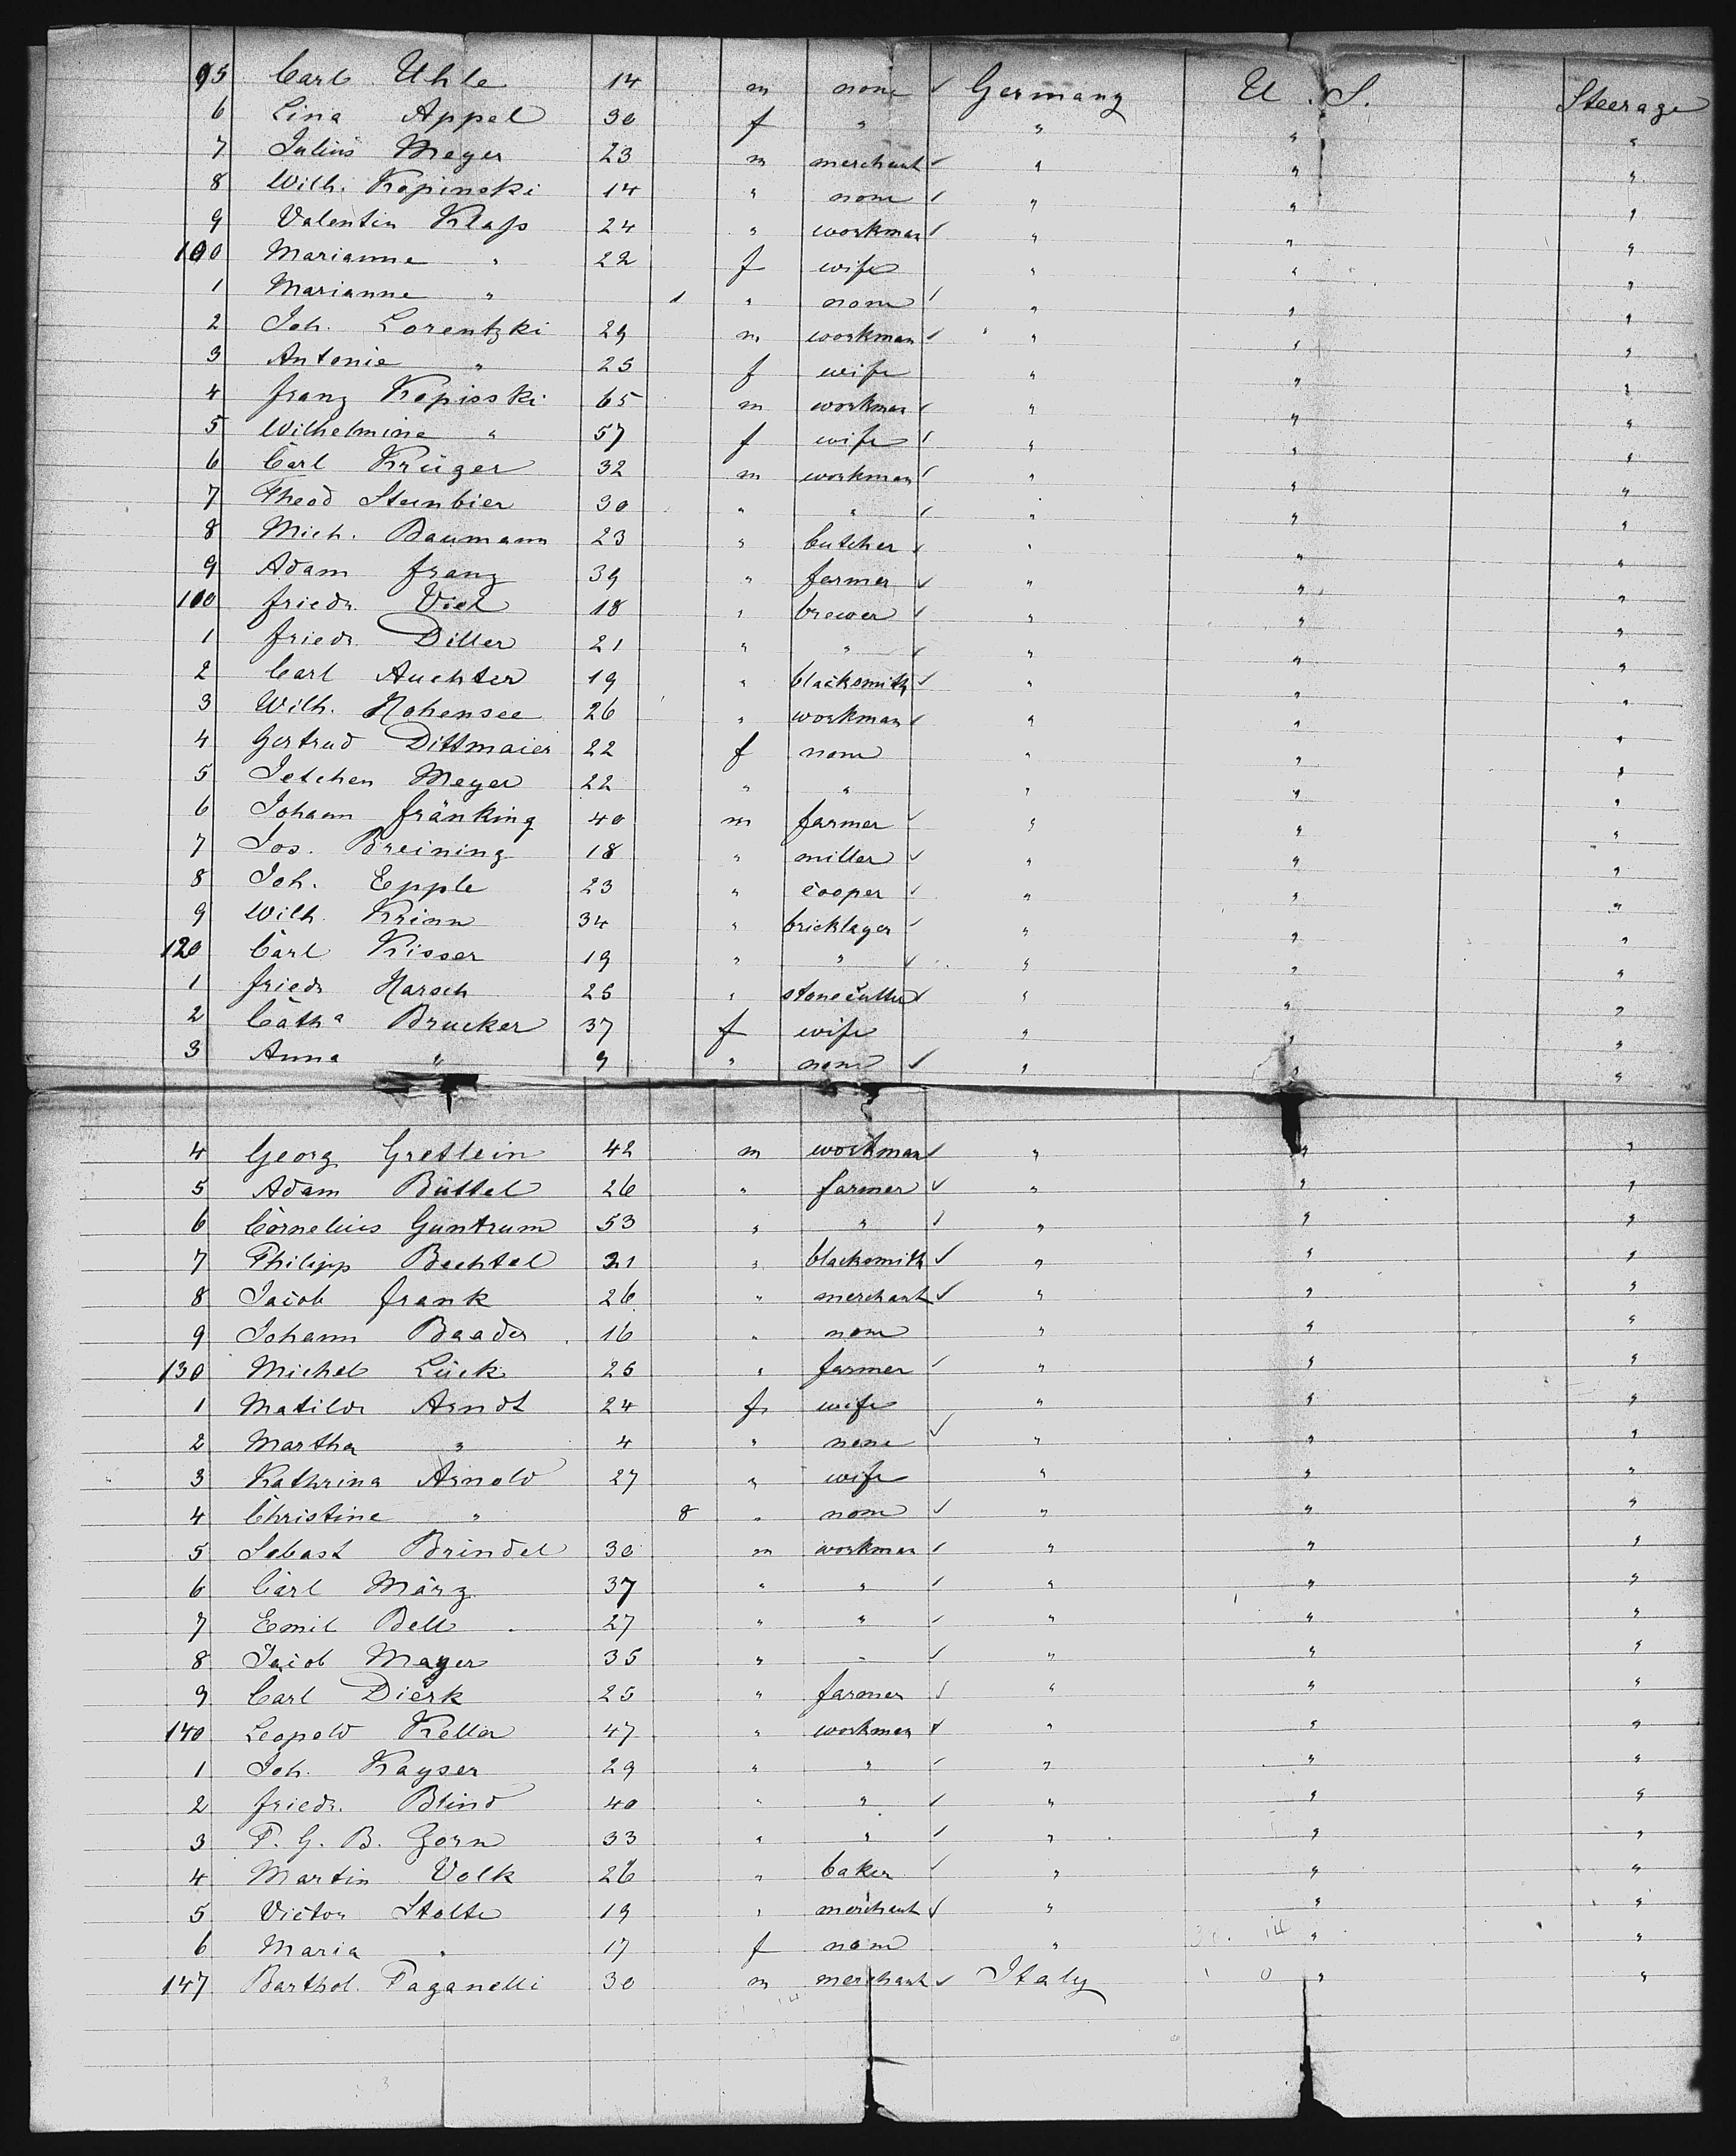 95 Carl Uhle 14 m none ✓ Germany U. S. Steerage
6 Lina Appel 30 f " " " "
7 Julius Meyer 23 m merchant ✓ " " "
8 Wilh. Kopinski 14 " none ✓ " " "
9 Valentin Klaſs 24 " workman ✓ " " "
100 Marianne " 22 f wife " " "
1 Marianne " 1 " none ✓ " " "
2 Joh. Lorentzki 29 m workman ✓ " " "
3 Antonie " 25 f wife " " "
4 Franz Kopisski 65 m workman ✓ " " "
5 Wilhelmine " 57 f wife ✓ " " "
6 Carl Krüger 32 m workman ✓ " " "
7 Theod Steinbier 30 " " ✓ " " "
8 Mich. Baumann 23 " butcher ✓ " " "
9 Adam Franz 39 " farmer ✓ " " "
110 Friedr. Viel 18 " brewer ✓ " " "
1 Friedr. Diller 21 " " ✓ " " "
2 Carl Auchter 19 " blacksmith ✓ " " "
3 Wilh. Hohensee 26 " workman ✓ " " "
4 Gertrud Dittmaier 22 f none " " "
5 Jetchen Meyer 22 " " " " "
6 Johann Fränking 40 m farmer ✓ " " "
7 Jos. Breining 18 " miller ✓ " " "
8 Joh. Epple 23 " cooper ✓ " " "
9 Wilh. Krinn 34 " bricklayer ✓ " " "
120 Carl Kisser 19 " " ✓ " " "
1 Friedr Harsch 25 " stonecutter ✓ " " "
2 Catha Brucker 37 f wife " " "
3 Anna " 9 " none ✓ " " "
4 Georg Gretlein 42 m workman ✓ " " "
5 Adam Büttel 26 " farmer ✓ " " "
6 Cornelius Guntrum 53 " " ✓ " " "
7 Philipp Bechtel 21 " blacksmith ✓ " " "
8 Jacob Frank 26 " merchant ✓ " " "
9 Johann Baader 16 " none " " "
130 Michel Lück 25 " farmer ✓ " " "
1 Matilde Arndt 24 f wife " " "
2 Martha " 4 " none ✓ " " "
3 Kathrina Arnold 27 " wife " " "
4 Christine " 8 " none ✓ " " "
5 Sebast Brindel 30 m workman ✓ " " "
6 Carl März 37 " " ✓ " " "
7 Emil Bell 27 " " ✓ " " "
8 Jacob Mayer 35 " " ✓ " " "
9 Carl Dierk 25 " farmer ✓ " " "
140 Leopold Keller 47 " workman ✓ " " "
1 Joh. Kayser 29 " " ✓ " " "
2 Friedr. Blind 40 " " ✓ " " "
3 F. G. B. Zorn 33 " " ✓ " " "
4 Martin Volk 26 " baker ✓ " " "
5 Victor Stolte 19 " merchant ✓ " " "
6 Maria " 17 f none " " "
147 Barthol. Paganelli 30 m merchant ✓ Italy " "